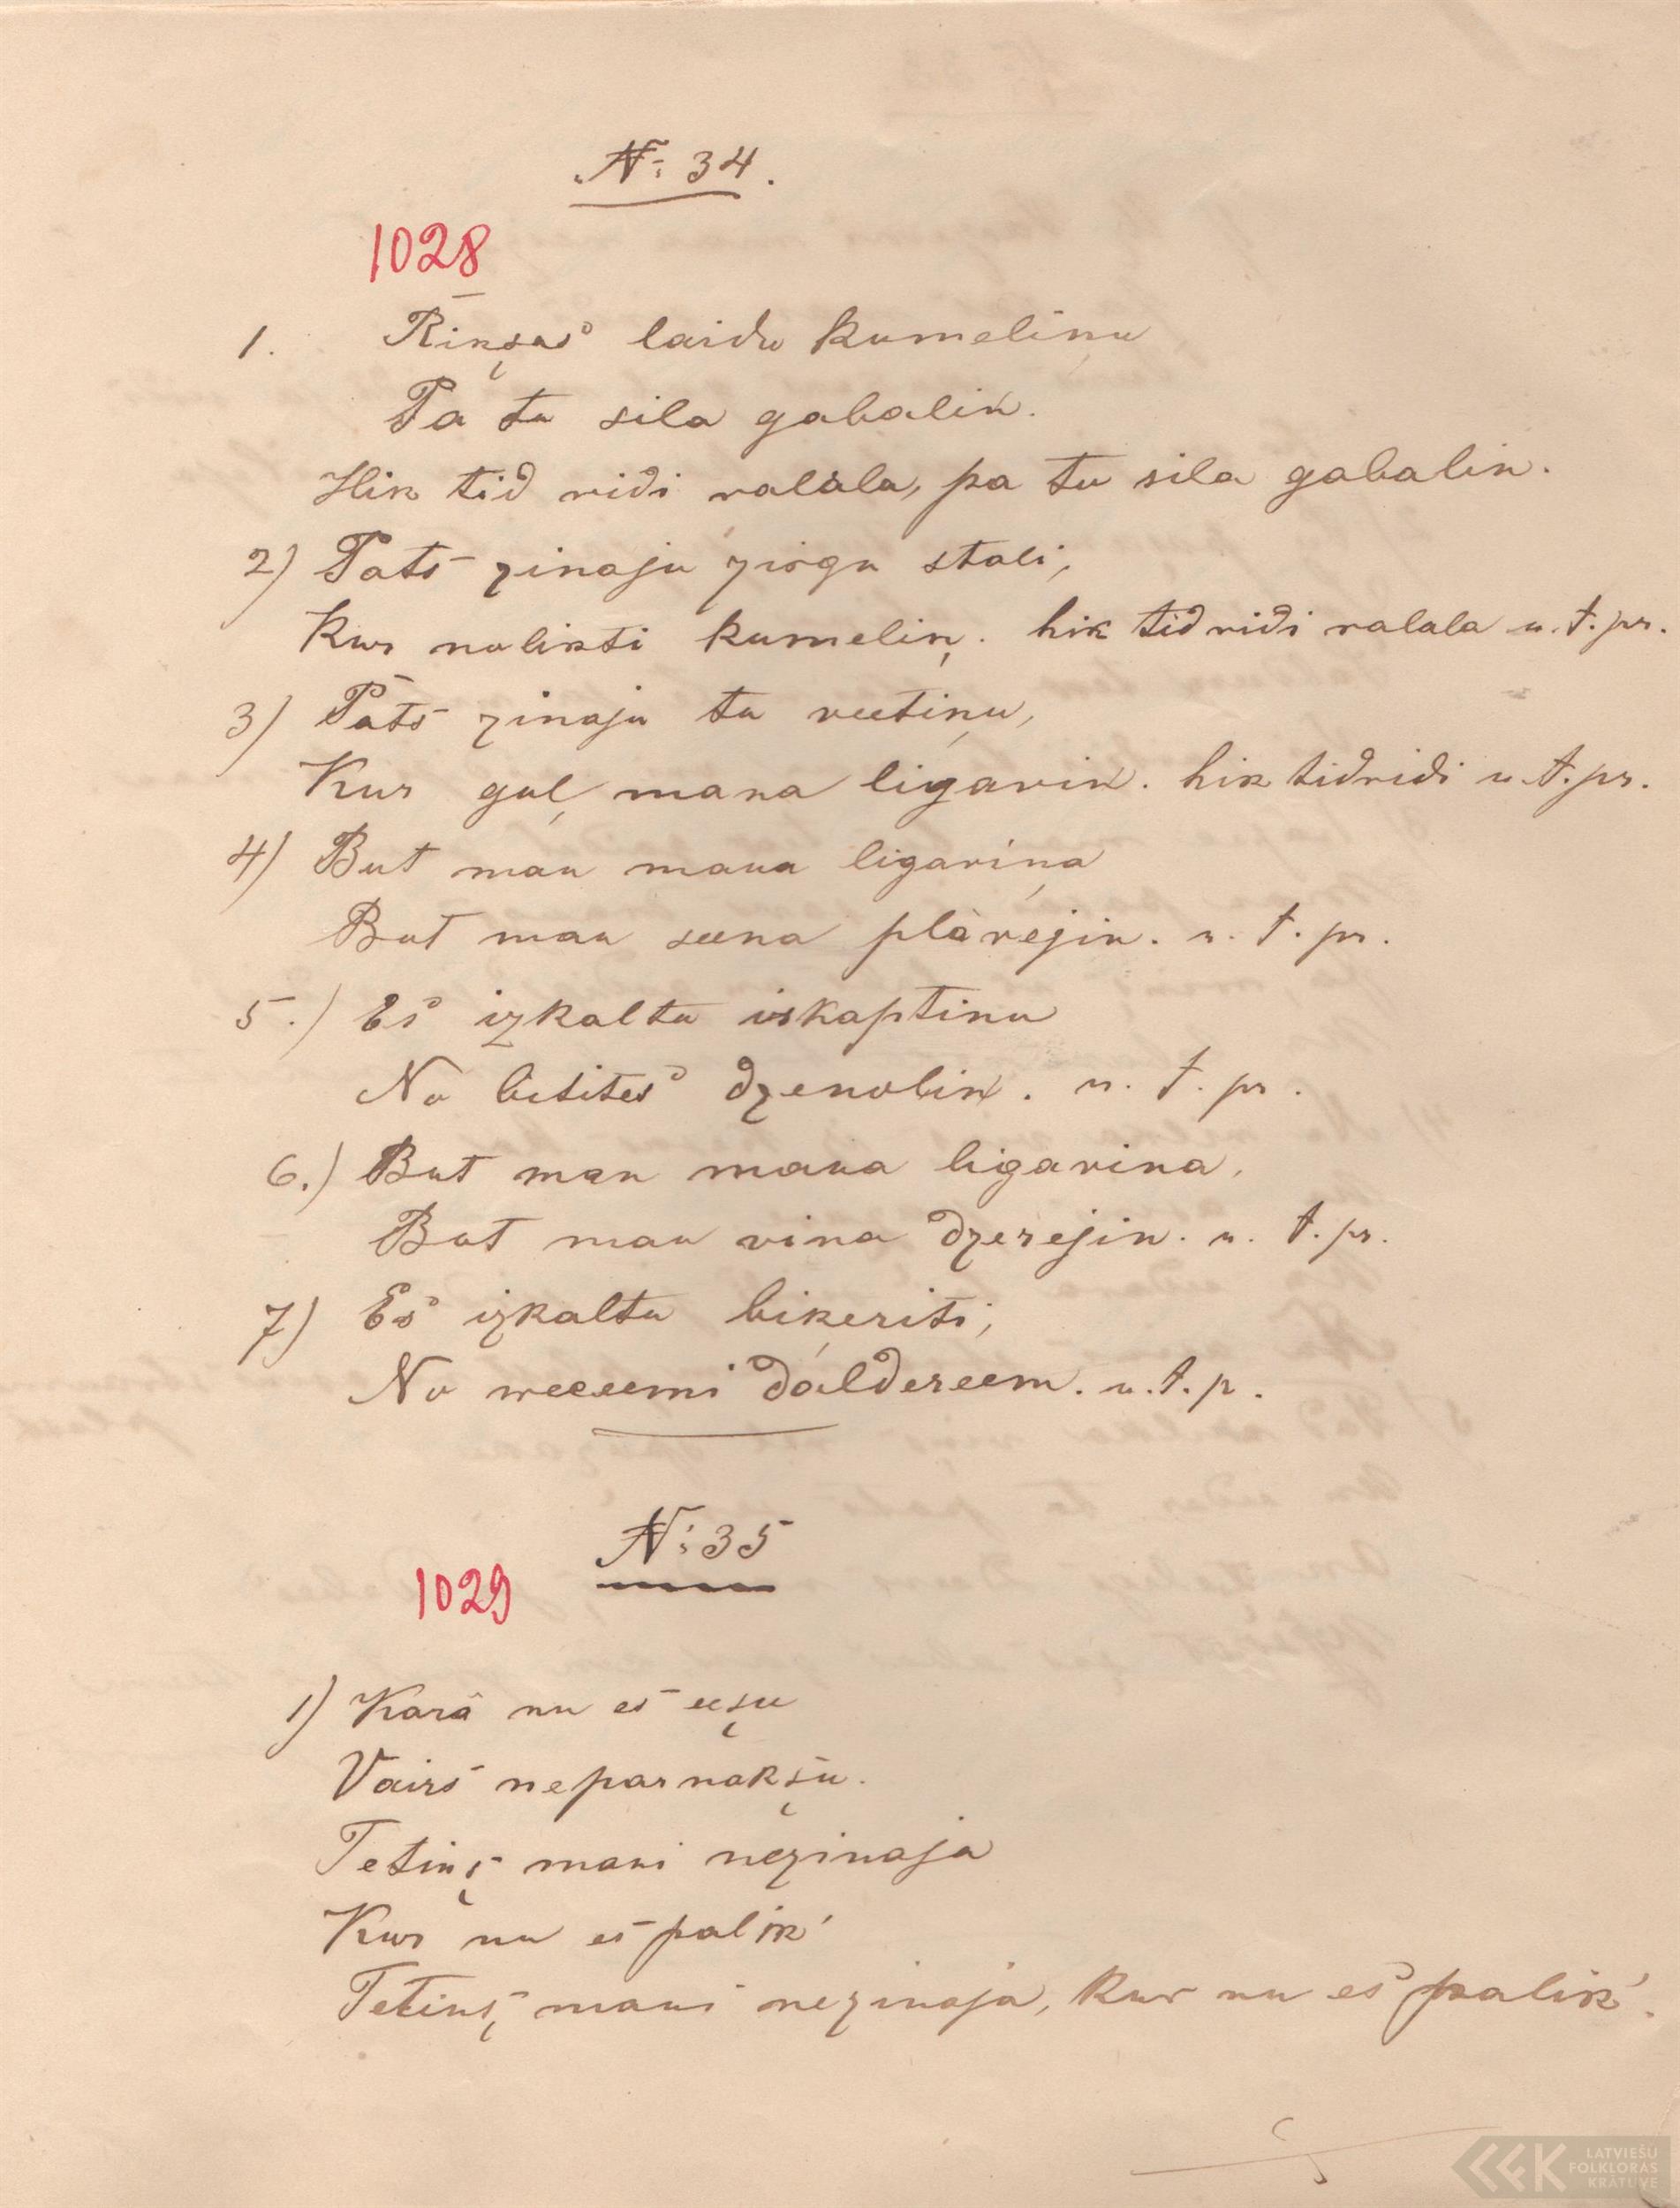 № 34.
1028
1. Rikşus laidu kumeliņu
Pa tu sila gabalin.
Hik tid ridi ralala, pa tu sila gabalin.
2) Pats zinaju zirgu stali,
Kur nolikti kumeliņ. hik tid ridi ralala u. t. pr.
3) Pats zinaju tu veetiņu,
Kur guļ mana ligavin. hik tidridi u. t. pr.
4) But man mana ligaviņa
But man seena plàvejin. u. t. pr.
5.) Es izkaltu iskaptinu
No bitites dzenolin. u. t. pr.
6.) But man mana ligavina,
But man vina dzerejin. u. t. pr.
7) Es izkaltu biķeriti,
No weeseemi daldereem. u. t. p.
№ 35
1029
1) Karâ nu es eeşu
Vairs neparnakşu.
Tetinş mani nezinaja
Kur nu es palik'
Tetinş mani nezinaja, kur nu es palik'.
LATVIEŠU
FOLKLORAS
KRĀTUVE